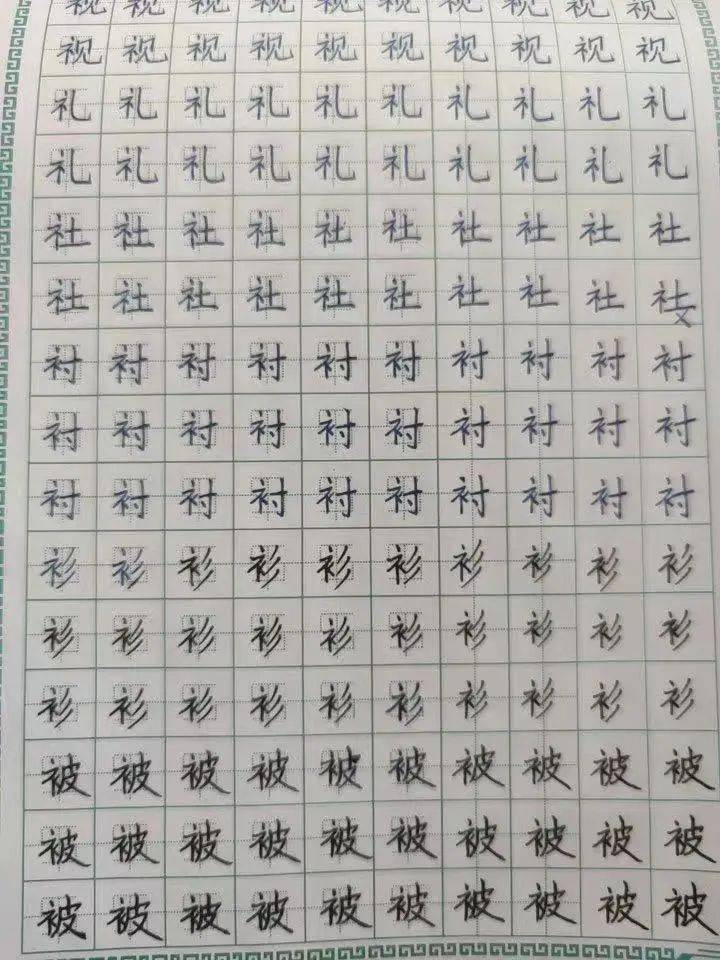 视视视视视视视视视视
视视视视视视视视视视
礼礼礼礼礼礼礼礼礼礼
礼礼礼礼礼礼礼礼礼礼
社社社社社社社社社社
社社社社社社社社社社
衬衬衬衬衬衬衬衬衬衬
衬衬衬衬衬衬衬衬衬衬
衬衬衬衬衬衬衬衬衬衬
衫衫衫衫衫衫衫衫衫衫
衫衫衫衫衫衫衫衫衫衫
衫衫衫衫衫衫衫衫衫衫
被被被被被被被被被被
被被被被被被被被被被
被被被被被被被被被被